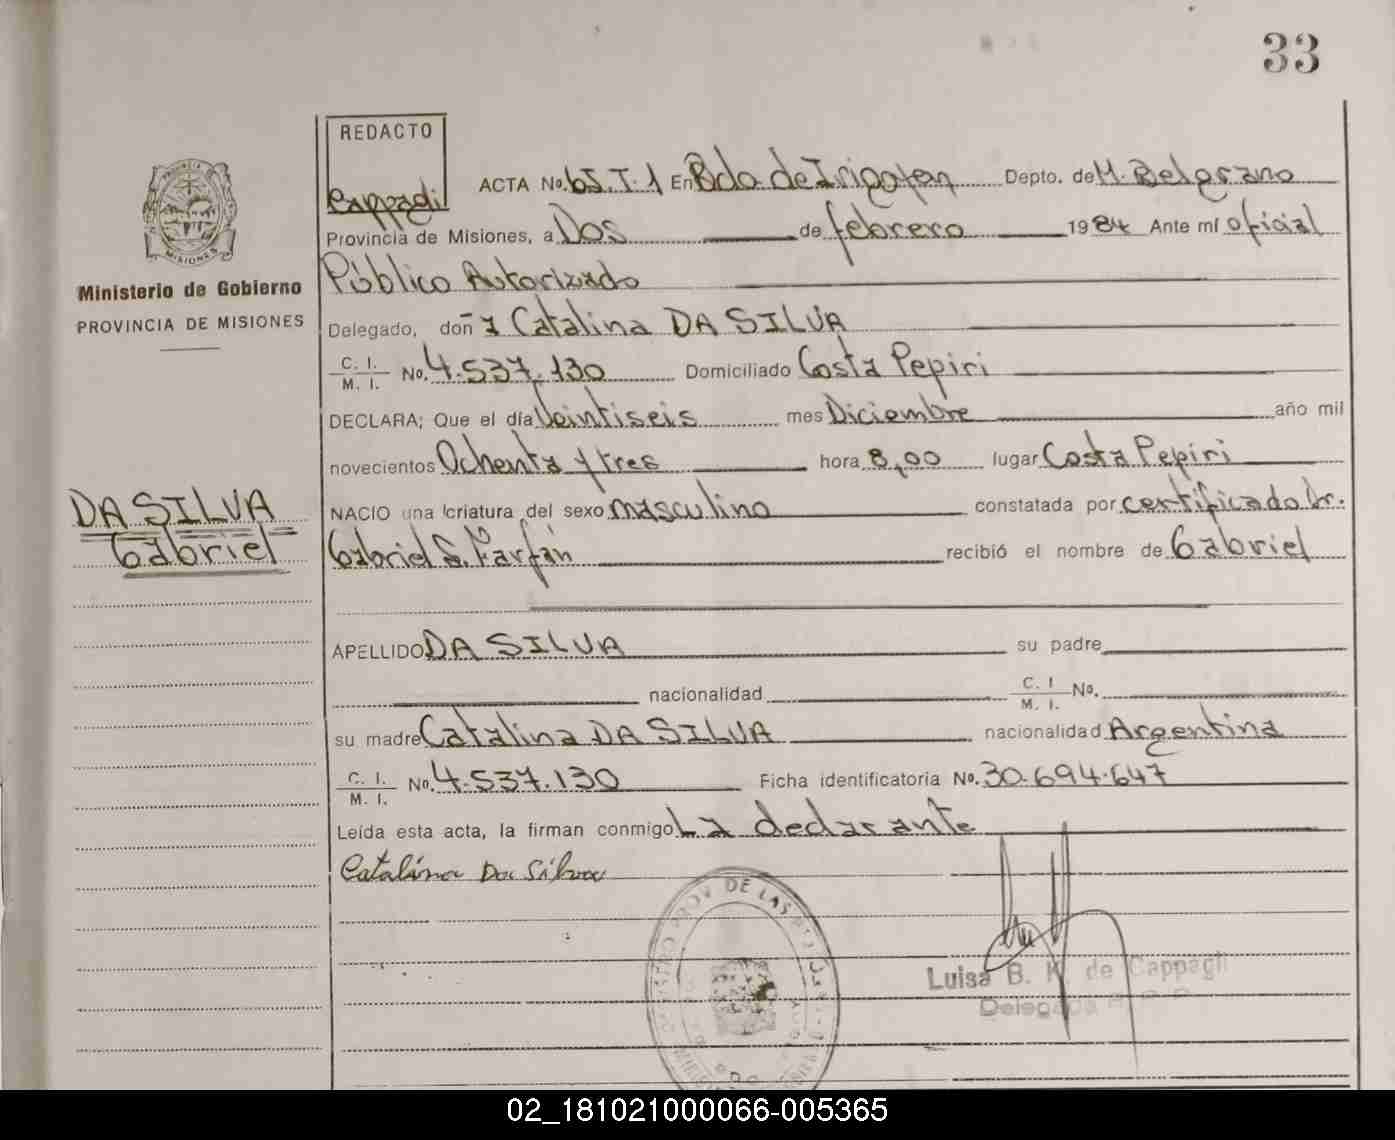 33
REDACTO
Cappagli
ACTA No. 65. T. 1 En Bdo. de Irigoyen Depto. de M. Belgrano
Provincia de Misiones, a Dos de febrero 1984 Ante mí oficial
Público Autorizado
Ministerio de Gobierno
PROVINCIA DE MISIONES
Delegado, doña Catalina DA SILVA
C. I.
M. I. No. 4.537.130 Domiciliado Costa Pepiri
DECLARA; Que el día Veintiseis mes Diciembre año mil
novecientos Ochenta y tres hora 8,00 lugar Costa Pepiri
DA SILVA
Gabriel
NACIO una criatura del sexo masculino constatada por certificado Dr.
Gabriel S. Farfán recibió el nombre de Gabriel
APELLIDO DA SILVA su padre
nacionalidad C. I. M. I. No.
su madre Catalina DA SILVA nacionalidad Argentina
C. I.
M. I. No. 4.537.130 Ficha identificatoria No. 30.694.647
Leída esta acta, la firman conmigo La declarante
Catalina Da Silva
PROV DE LAS
Luisa B. K. de Cappagli
Delegada
02_181021000066-005365